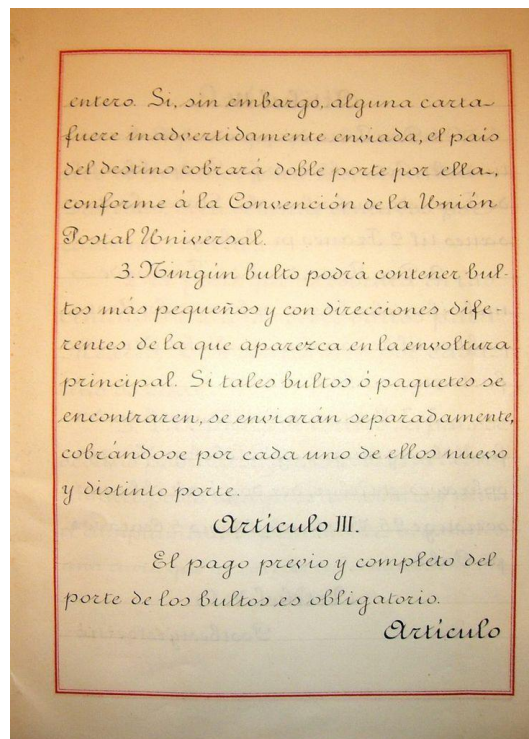 entero. Si, sin embargo, alguna carta
fuere inadvertidamente enviada, el país
del destino cobrará doble porte por ella,
conforme á la Convención de la Unión
Postal Universal.
3. Ningún bulto podrá contener bul-
tos más pequeños y con direcciones dife-
rentes de la que aparezca en la envoltura
principal. Si tales bultos ó paquetes se
encontraren, se enviarán separadamente,
cobrándose por cada uno de ellos nuevo
y distinto porte.
Artículo III.
El pago previo y completo del
porte de los bultos es obligatorio.
Artículo